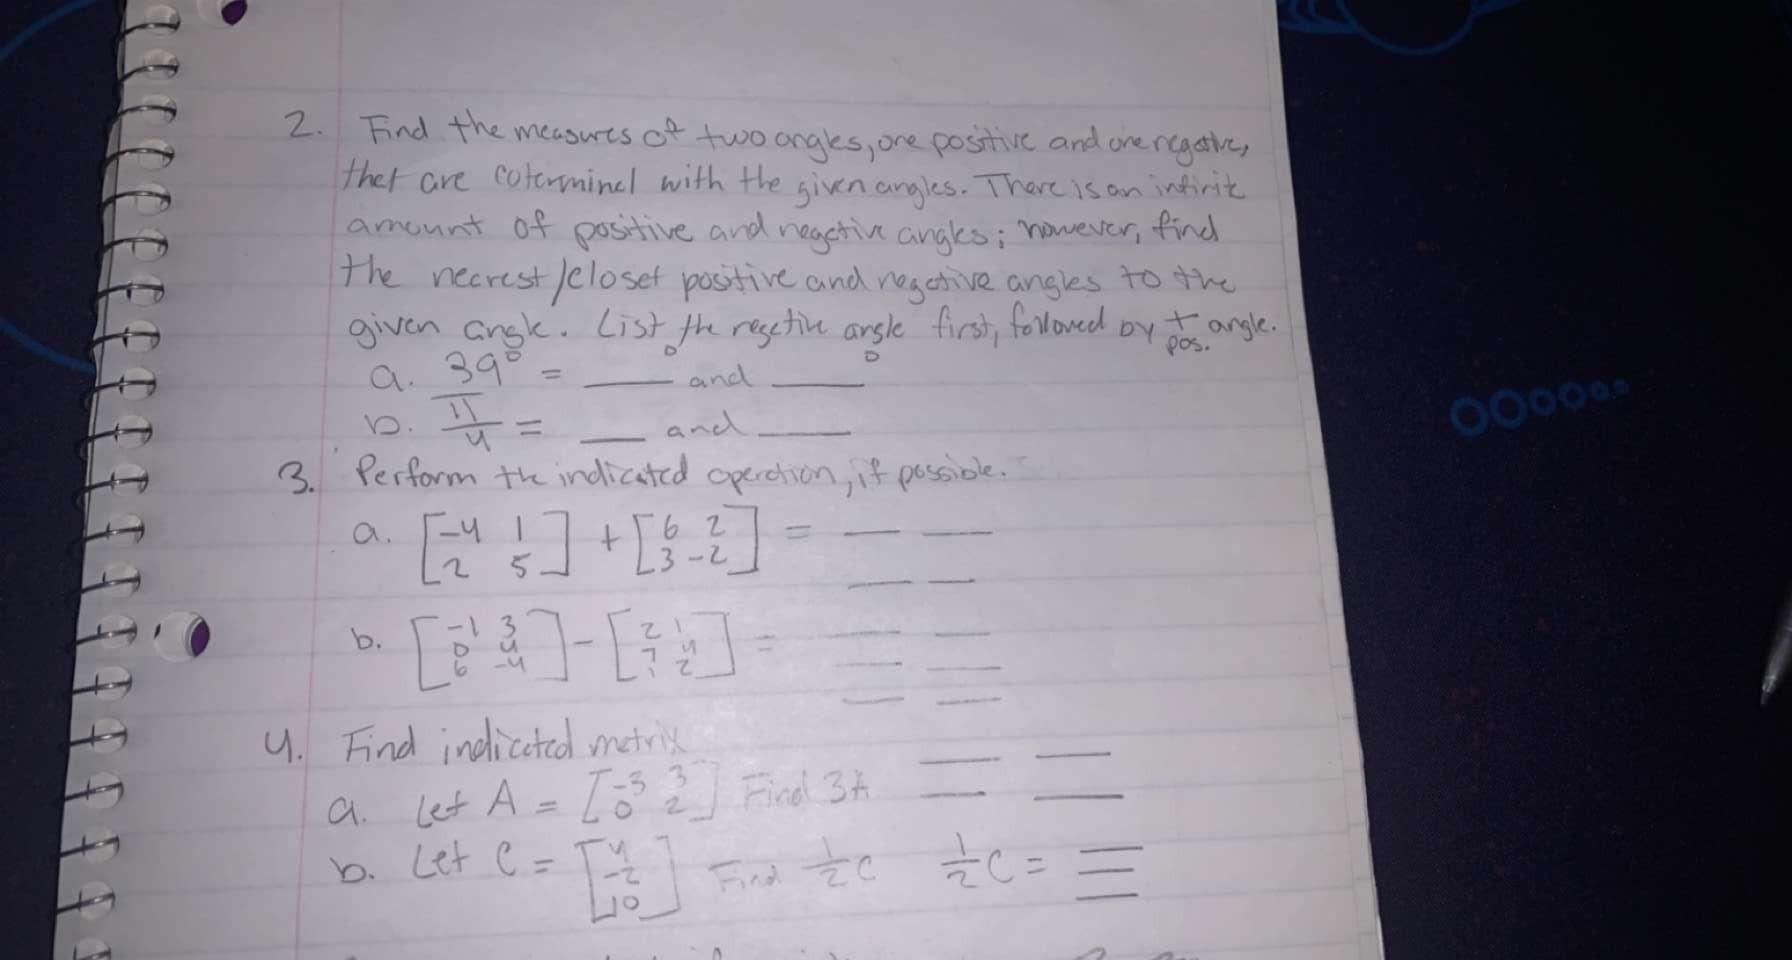 2. Find the measures of two angles, one positive and one negative,
that are coterminal with the given angles. There is an infinite
amount of positive and negative angles; however, find
the nearest/closet positive and negative angles to the
given angle. List the negative angle first, followed by + angle.
pos.
a. 39° = ___° and ___°
b. π/4 = ___ and ___
3. Perform the indicated operation, if possible.
a. [-4 1] + [6 2] = __ __
[2 5] [3 -2] __ __
b. [-1 3] - [2 1] = __ __
[0 4] [7 4] __ __
[6 -4] [1 2] __ __
4. Find indicated matrix
a. Let A = [-3 3] Find 3A __ __
[0 2] __ __
b. Let C = [4] Find 1/2 C 1/2 C = __
[-2] __
[10] __